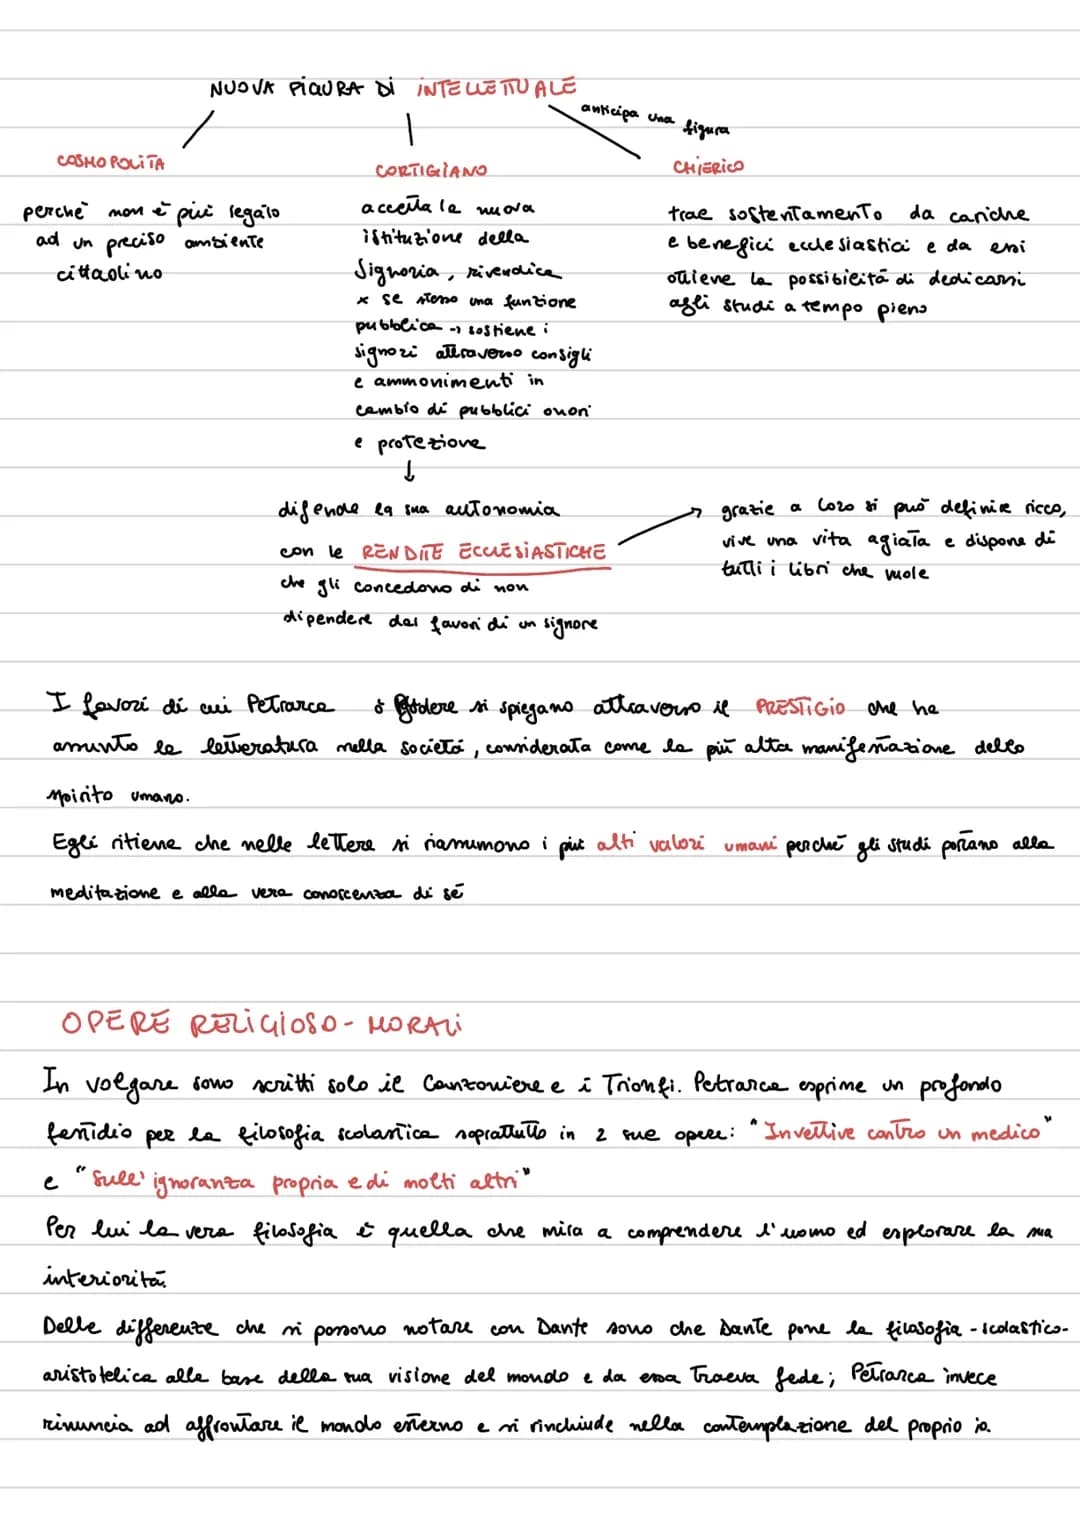 NUOVA FIGURA DI INTELLETTUALE
anticipa una figura
COSMOPOLITA
perché non è più legato
ad un preciso ambiente
cittadino
CORTIGIANO
accetta la nuova
istituzione della
Signoria, rivendica
x se stesso una funzione
pubblica -> sostiene i
signori attraverso consigli
e ammonimenti in
cambio di pubblici onori
e protezione
↓
difende la sua autonomia
con le RENDITE ECCLESIASTICHE
che gli concedono di non
dipendere dai favori di un signore
CHIERICO
trae sostentamento da cariche
e benefici ecclesiastici e da essi
ottiene la possibilità di dedicarsi
agli studi a tempo pieno
→ grazie a loro si può definire ricco,
vive una vita agiata e dispone di
tutti i libri che vuole
I favori di cui Petrarca godere si spiegano attraverso il PRESTIGIO che ha
assunto la letteratura nella società, considerata come la più alta manifestazione dello
spirito umano.
Egli ritiene che nelle lettere si riassumono i più alti valori umani perché gli studi portano alla
meditazione e alla vera conoscenza di sé
OPERE RELIGIOSO-MORALI
In volgare sono scritti solo il Canzoniere e i Trionfi. Petrarca esprime un profondo
fastidio per la filosofia scolastica soprattutto in 2 sue opere: "Invettive contro un medico"
e "Sull'ignoranza propria e di molti altri"
Per lui la vera filosofia è quella che mira a comprendere l'uomo ed esplorare la sua
interiorità.
Delle differenze che si possono notare con Dante sono che Dante pone la filosofia-scolastico-
aristotelica alla base della sua visione del mondo e da essa traeva fede; Petrarca invece
rinuncia ad affrontare il mondo esterno e si rinchiude nella contemplazione del proprio io.